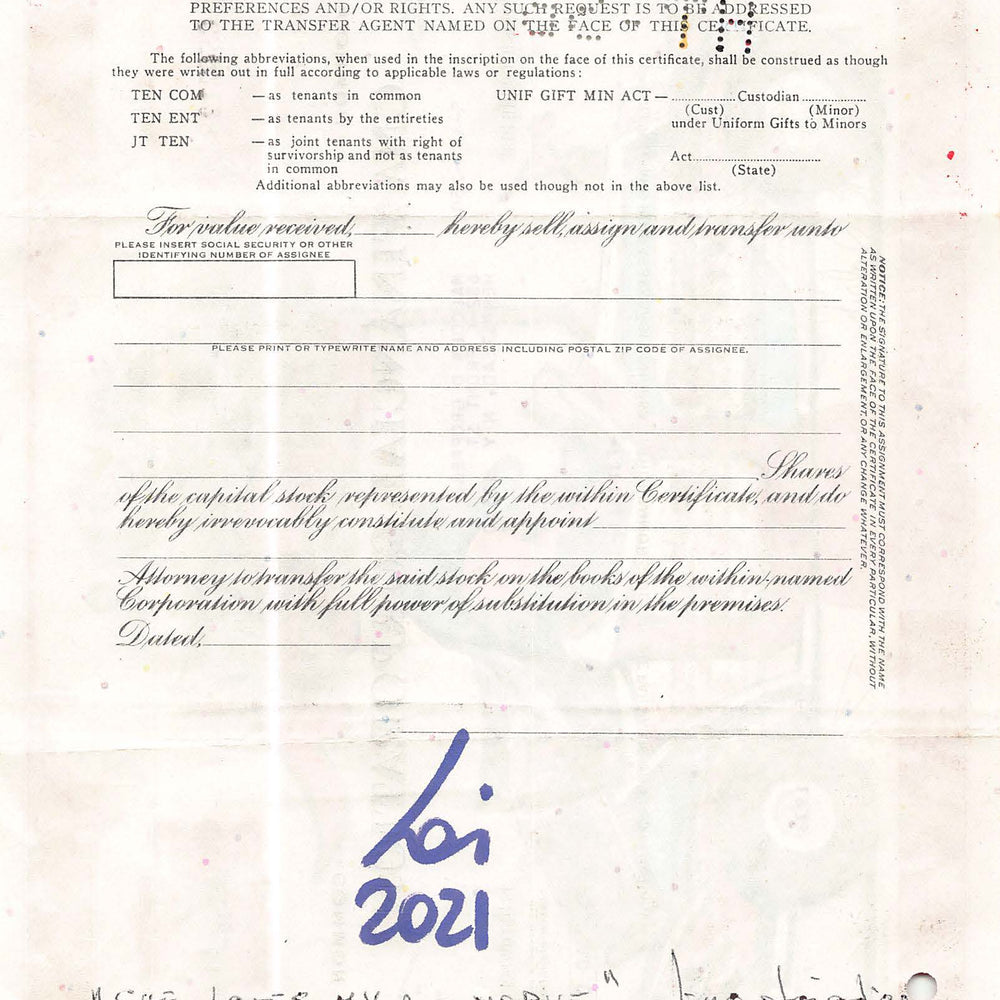 PREFERENCES AND/OR RIGHTS. ANY SUCH REQUEST IS TO BE ADDRESSED
TO THE TRANSFER AGENT NAMED ON THE FACE OF THIS CERTIFICATE.
The following abbreviations, when used in the inscription on the face of this certificate, shall be construed as though
they were written out in full according to applicable laws or regulations:
TEN COM — as tenants in common
TEN ENT — as tenants by the entireties
JT TEN — as joint tenants with right of
survivorship and not as tenants
in common
UNIF GIFT MIN ACT — ................Custodian................
(Cust) (Minor)
under Uniform Gifts to Minors
Act................................
(State)
Additional abbreviations may also be used though not in the above list.
For value received, ________ hereby sell, assign and transfer unto
PLEASE INSERT SOCIAL SECURITY OR OTHER
IDENTIFYING NUMBER OF ASSIGNEE
PLEASE PRINT OR TYPEWRITE NAME AND ADDRESS INCLUDING POSTAL ZIP CODE OF ASSIGNEE.
Shares
of the capital stock represented by the within Certificate, and do
hereby irrevocably constitute and appoint
Attorney to transfer the said stock on the books of the within-named
Corporation with full power of substitution in the premises.
Dated,
NOTICE: THE SIGNATURE TO THIS ASSIGNMENT MUST CORRESPOND WITH THE NAME
AS WRITTEN UPON THE FACE OF THE CERTIFICATE IN EVERY PARTICULAR, WITHOUT
ALTERATION OR ENLARGEMENT, OR ANY CHANGE WHATEVER.
Loi
2021